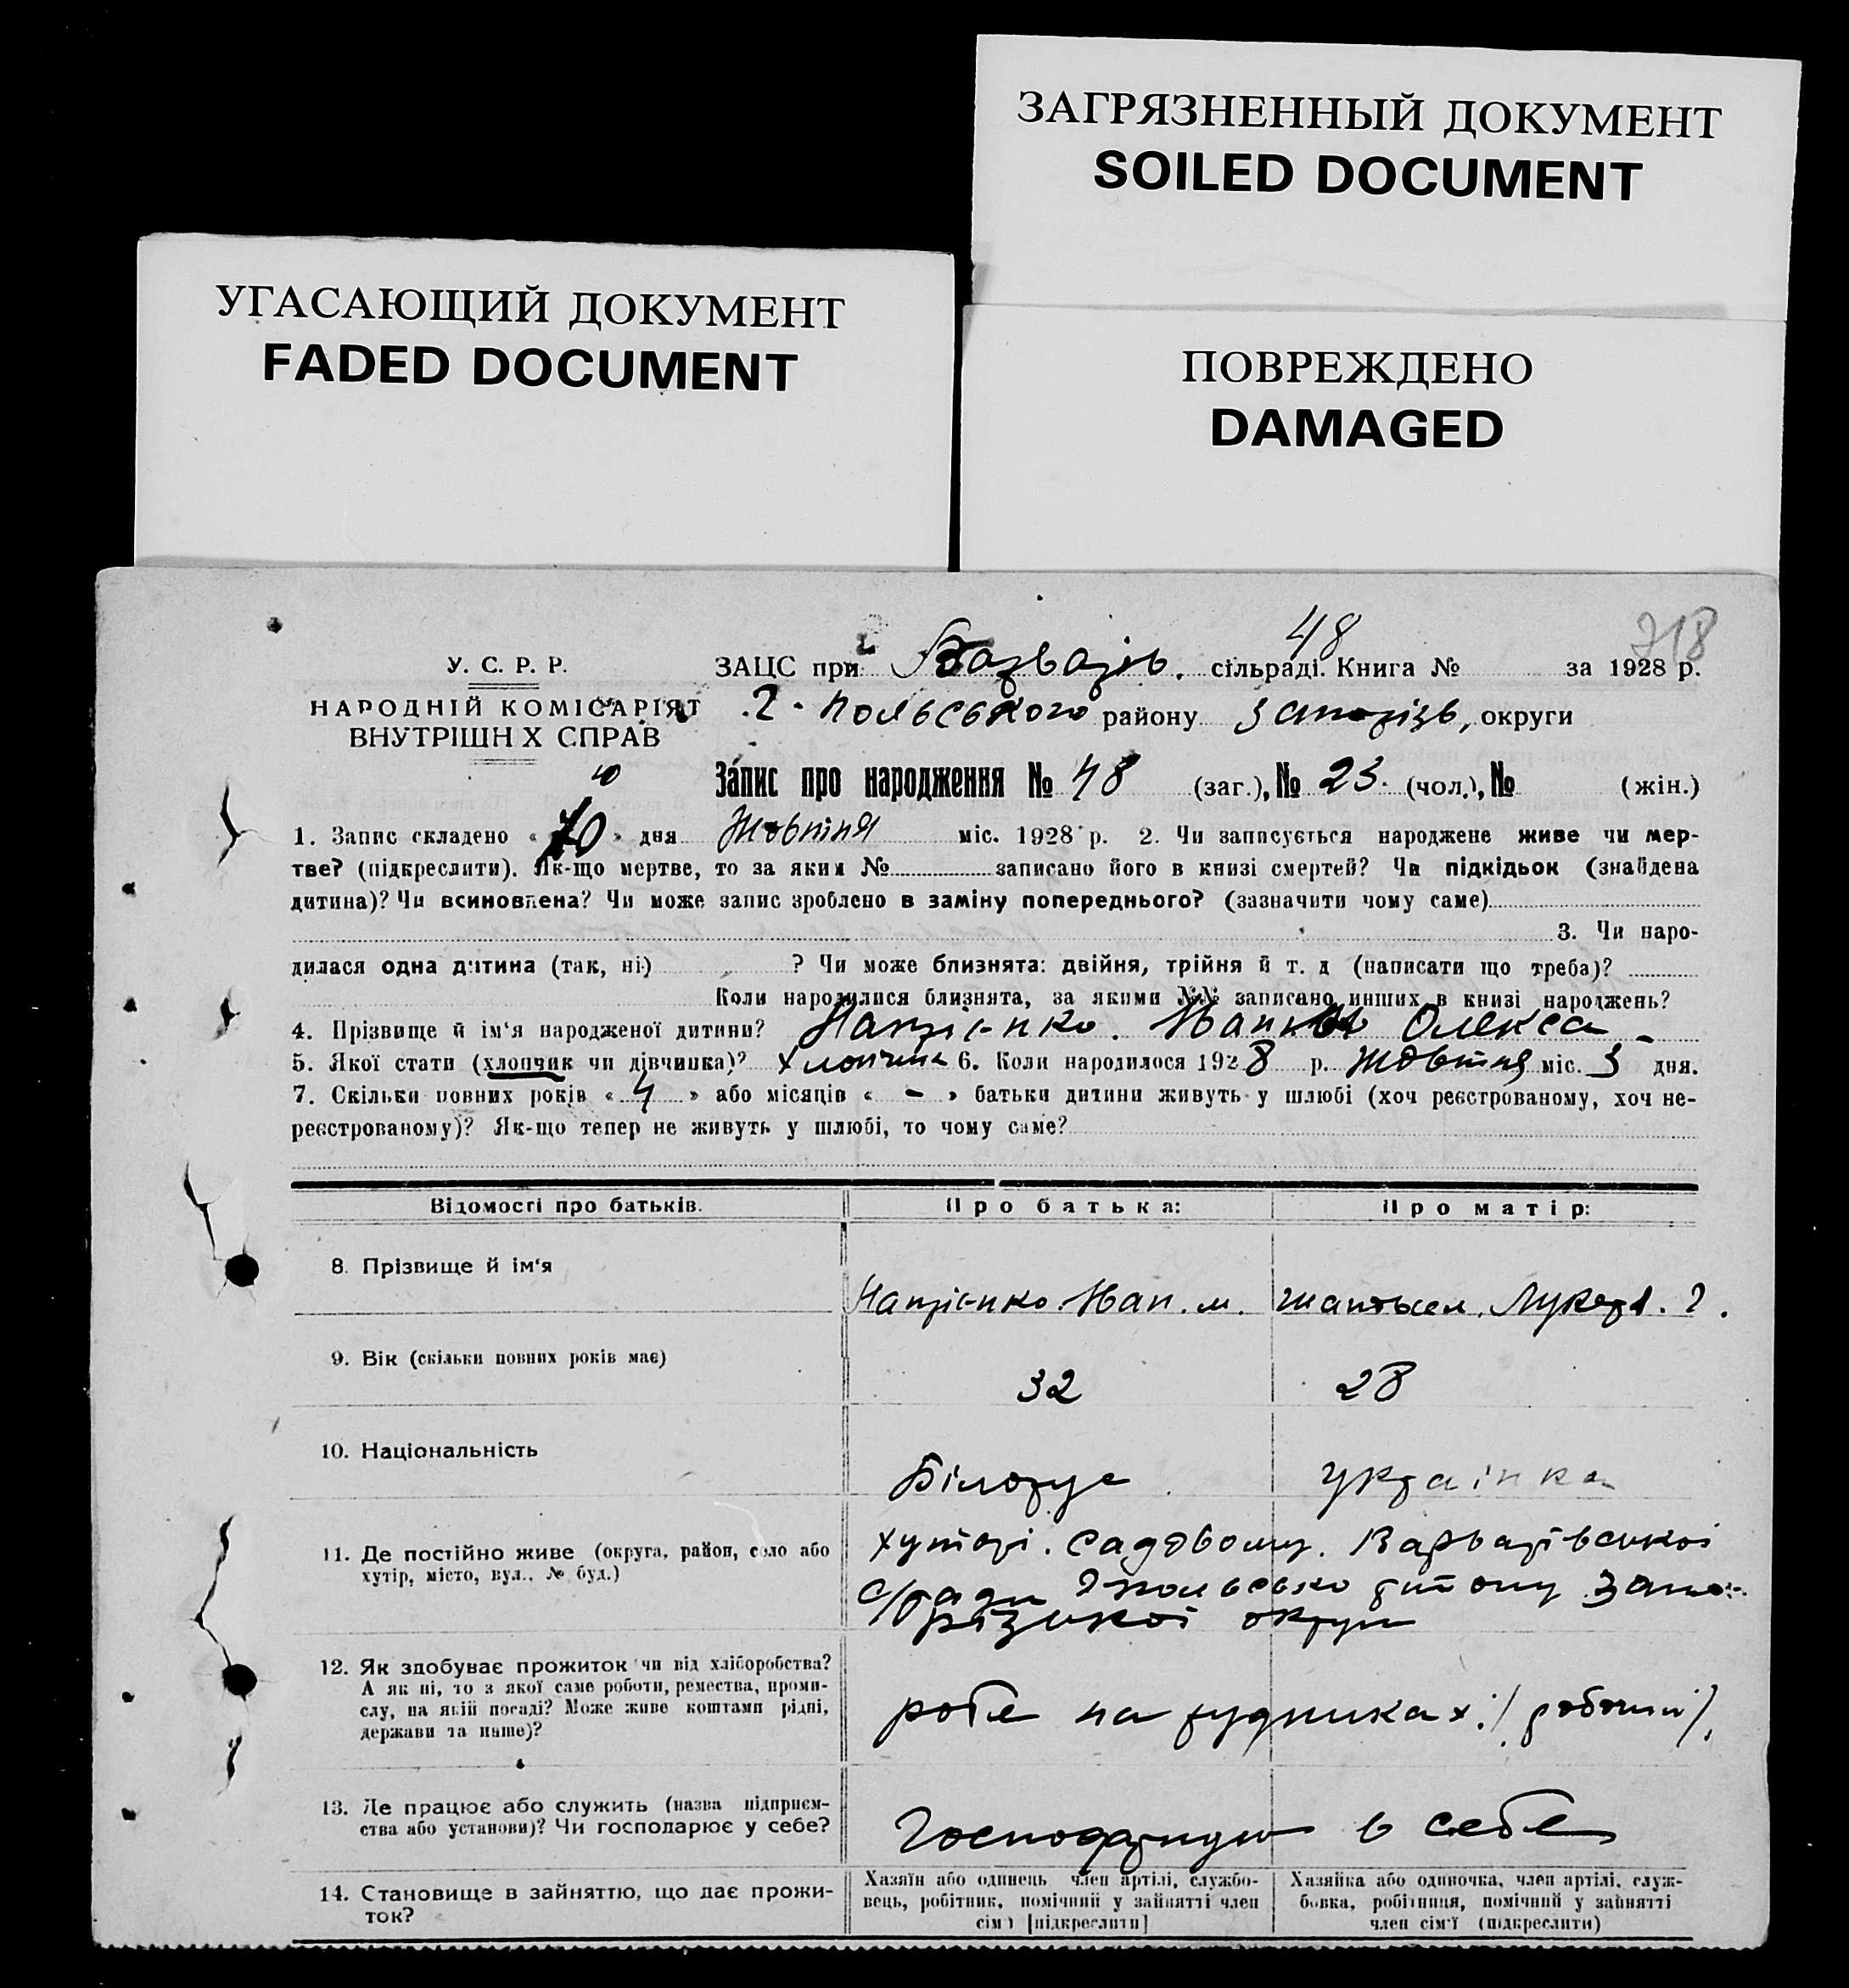 ЗАГРЯЗНЕННЫЙ ДОКУМЕНТ
SOILED DOCUMENT
УГАСАЮЩИЙ ДОКУМЕНТ
FADED DOCUMENT
ПОВРЕЖДЕНО
DAMAGED
48
318
У. С. Р. Р.
НАРОДНІЙ КОМІСАРІЯТ
ВНУТРІШН Х СПРАВ
ЗАЦС при сільраді. Книга № за 1928 р.
2-польського району Запорізь, округи
Запис про народження № 48 (заг.), № 23. (чол.), № (жін.)
10
1. Запис складено « 10 » дня Жовтня міс. 1928 р. 2. Чи записується народжене живе чи мер-
тве? (підкреслити). Як-що мертве, то за яким № записано його в книзі смертей? Чи підкідьок (знайдена
дитина)? Чи всиновлена? Чи може запис зроблено в заміну попереднього? (зазначити чому саме)
3. Чи наро-
дилася одна дитина (так, ні) ? Чи може близнята: двійня, трійня й т. д (написати що треба)?
Коли народилися близнята, за якими №№ записано инших в книзі народжень?
4. Прізвище й ім'я народженої дитини? Олекса
5. Якої стати (хлопчик чи дівчинка)? хлопчик 6. Коли народилося 1928 р. Жовтня міс. 5 дня.
7. Скільки повних років « 4 » або місяців « - » батьки дитини живуть у шлюбі (хоч реєстрованому, хоч не-
реєстрованому)? Як-що тепер не живуть у шлюбі, то чому саме?
Відомості про батьків. Про батька: Про матір:
8. Прізвище й ім'я
9. Вік (скільки повних років має) 32 28
10. Національність Білорус українка
11. Де постійно живе (округа, район, село або
хутір, місто, вул., № буд.)
хуторі. Садовому. Варварівської
с/ради
округи
12. Як здобуває прожиток чи від хліборобства?
А як ні, то з якої саме роботи, ремества, проми-
слу, на якій посаді? Може живе коштами рідні,
держави та инше)?
робе на рудниках. / робочий /.
13. Де працює або служить (назва підприєм-
ства або установи)? Чи господарює у себе?
в себе
14. Становище в зайняттю, що дає прожи-
ток?
Хазяїн або одинець член артілі, службо-
вець, робітник, помічний у зайнятті член
сім'ї [підкреслити]
Хазяйка або одиночка, член артілі, служ-
бовка, робітниця, помічний у зайнятті
член сім'ї (підкреслити)